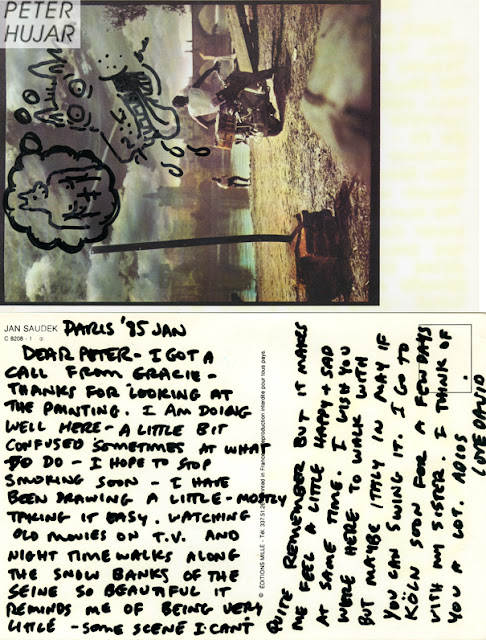 PETER
HUJAR
JAN SAUDEK
C 8208 - 1
PARIS '85 JAN
DEAR PETER - I GOT A
CALL FROM GRACIE -
THANKS FOR LOOKING AT
THE PAINTING. I AM DOING
WELL HERE - A LITTLE BIT
CONFUSED SOMETIMES AT WHAT
DO - I HOPE TO STOP
SMOKING SOON - I HAVE
BEEN DRAWING A LITTLE - MOSTLY
TAKING IT EASY. WATCHING
OLD MOVIES ON T.V. AND
NIGHT TIME WALKS ALONG
THE SNOW BANKS OF THE
SEINE SO BEAUTIFUL IT
REMINDS ME OF BEING VERY
LITTLE - SOME SCENE I CAN'T
© ÉDITIONS MILLE - Tél. 337.51.2 Printed in France reproduction interdite pour tous pays.
QUITE REMEMBER BUT IT MAKES
ME FEEL A LITTLE HAPPY + SAD
AT SAME TIME. I WISH YOU
WERE HERE TO WALK WITH
BUT MAYBE ITALY IN MAY IF
YOU CAN SWING IT. I GO TO
KÖLN SOON FOR A FEW DAYS
WITH MY SISTER. I THINK OF
YOU A LOT. ADIOS
LOVE DAVID